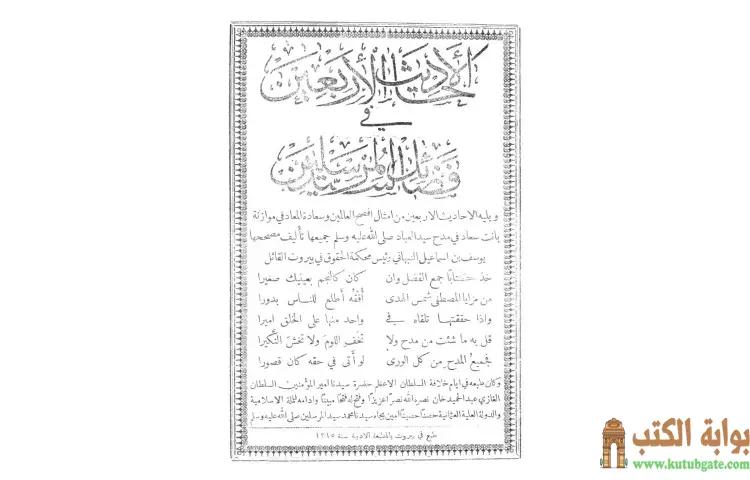 الأحاديث الأربعين
في
فضائل سيد المرسلين
ويليه الاحاديث الاربعين من امثال افصح العالمين وسعادة المعاد في موازنة
بانت سعاد في مدح سيد العباد صلى الله عليه وسلم جميعها تأليف مصححها
يوسف بن اسماعيل النبهاني رئيس محكمة الحقوق في بيروت القائل
خذ كتابا جمع الفضل وان كان كالنجم بعينيك صغيرا
من مزايا المصطفى شمس الهدى أفقه أطلع للناس بدورا
واذا حققتها تلقاه في واحد منها على الخلق اميرا
قل به ما شئت من مدح ولا تخف اللوم ولا تخش النكيرا
فجميع المدح من كل الورى لو أتى في حقه كان قصورا
وكان طبعه في ايام خلافة السلطان الاعظم حضرة سيدنا امير المؤمنين السلطان
الغازي عبد الحميد خان نصره الله نصرا عزيزا وفتح له فتحا مبينا وادامه للملة الاسلامية
والدولة العلية العثمانية حصنا حصينا امين بجاه سيدنا محمد سيد المرسلين صلى الله عليه وسلم
طبع في بيروت بالمطبعة الادبية سنة ١٣١٥
بوابة الكتب
www.kutubgate.com